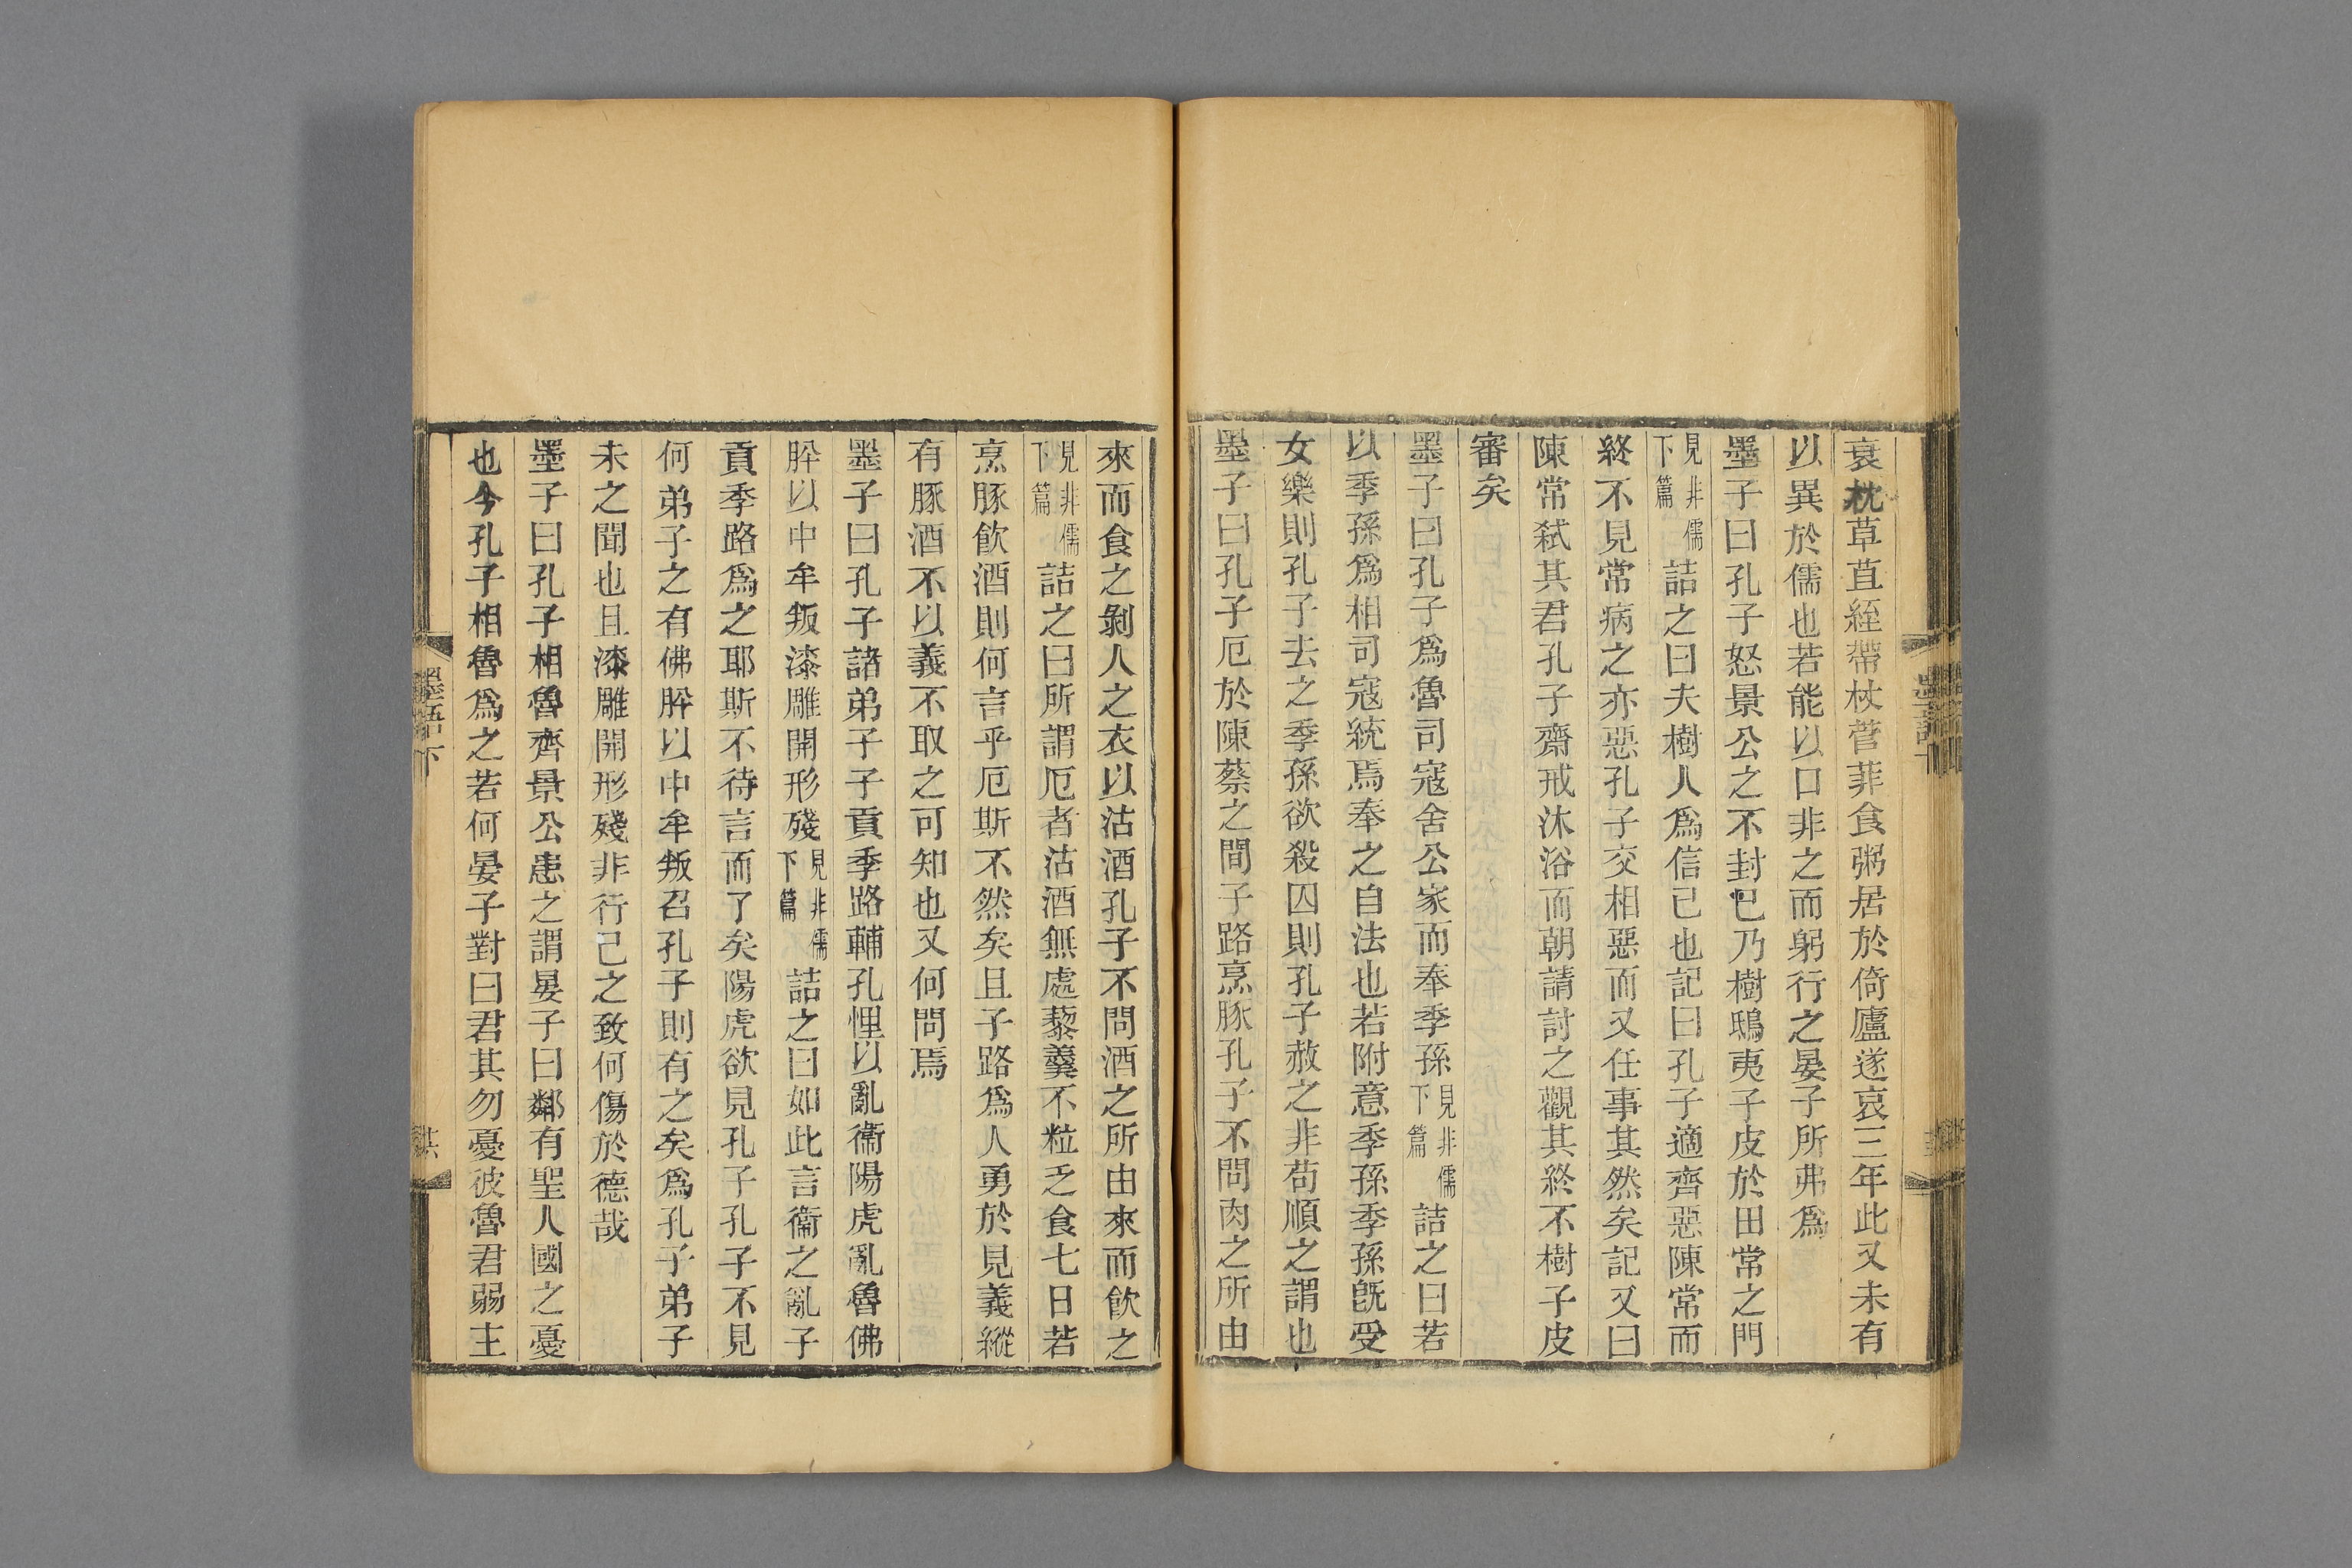 衰枕草苴絰帶杖菅菲食粥居於倚廬遂哀三年此又未有
以異於儒也若能以口非之而躬行之晏子所弗爲
墨子曰孔子怒景公之不封己乃樹鴟夷子皮於田常之門
見非儒下篇詰之曰夫樹人爲信己也記曰孔子適齊惡陳常而
終不見常病之亦惡孔子交相惡而又任事其然矣記又曰
陳常弑其君孔子齋戒沐浴而朝請討之觀其終不樹子皮
審矣
墨子曰孔子爲魯司寇舍公家而奉季孫見非儒下篇詰之曰若
以季孫爲相司寇統焉奉之自法也若附意季孫季孫旣受
女樂則孔子去之季孫欲殺囚則孔子赦之非苟順之謂也
墨子曰孔子厄於陳蔡之間子路烹豚孔子不問肉之所由
來而食之剝人之衣以沽酒孔子不問酒之所由來而飲之
見非儒下篇詰之曰所謂厄者沽酒無處藜羹不粒乏食七日若
烹豚飲酒則何言乎厄斯不然矣且子路爲人勇於見義縱
有豚酒不以義不取之可知也又何問焉
墨子曰孔子諸弟子子貢季路輔孔悝以亂衞陽虎亂魯佛
肸以中牟叛漆雕開形殘見非儒下篇詰之曰如此言衞之亂子
貢季路爲之耶斯不待言而了矣陽虎欲見孔子孔子不見
何弟子之有佛肸以中牟叛召孔子則有之矣爲孔子弟子
未之聞也且漆雕開形殘非行己之致何傷於德哉
墨子曰孔子相魯齊景公患之謂晏子曰鄰有聖人國之憂
也今孔子相魯爲之若何晏子對曰君其勿憂彼魯君弱主
墨語下